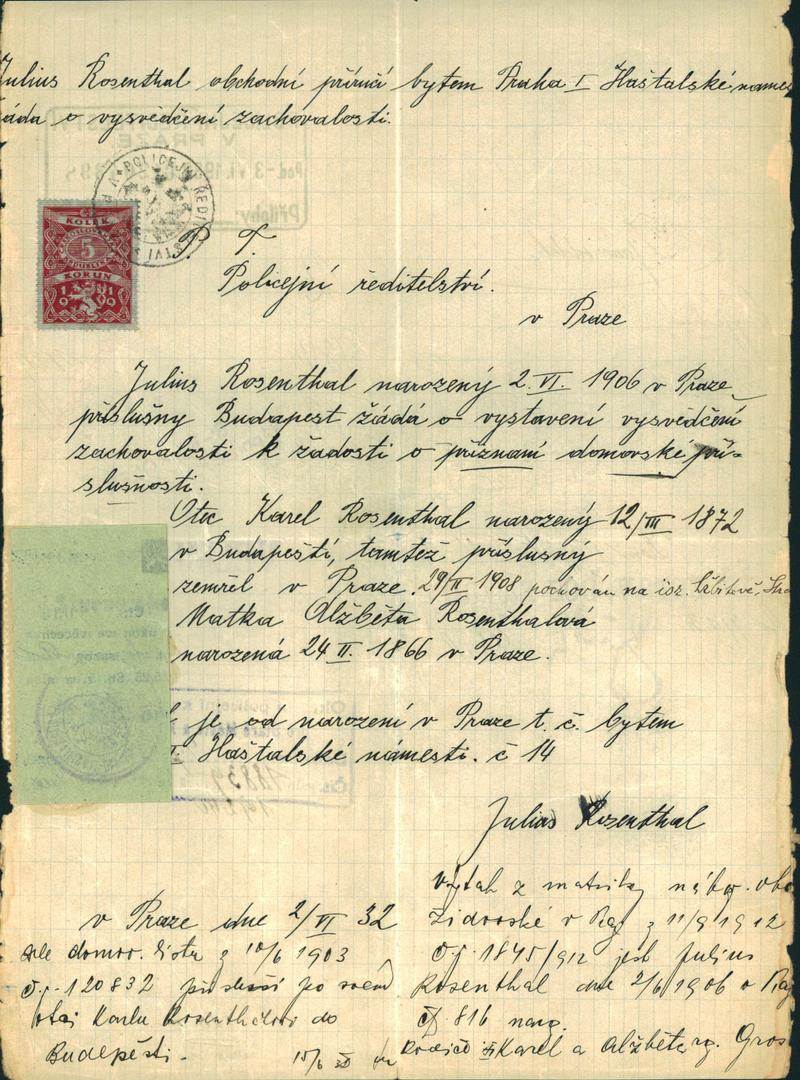 Julius Rosenthal obchodní příručí bytem Praha I Haštalské náměs
žádá o vysvědčení zachovalosti.
POLICEJNÍ ŘEDI
KOLEK
5
KORUN
1919
P. T.
Policejní ředitelství.
v Praze
Julius Rosenthal narozený 2. VI. 1906 v Praze
příslušny Budapest žádá o vystavení vysvědčení
zachovalosti k žádosti o přiznaní domovské pří-
slušnosti.
Otec Karel Rosenthal narozený 12/III 1872
v Budapešti, tamtež příslusný
zemřel v Praze. 29/II 1908 pochován na isr. hřbitově,
Matka Alžběta Rosenthalová
narozená 24 II. 1866 v Praze.
je od narození v Praze t. č. bytem
I. Haštalské námesti. č 14
Julius Rosenthal
v Praze dne 2/VI 32
dle domov. listu z 10/6 1903
č.j. 120832 přísluší po
otci Karlu Rosenthalovi do
Budapešti.
15/6
Výtah z matriky nábož. obc
Židovské v z 11/9 1912
čj. 1845/912 jest Julius
Rosenthal dne 2/6 1906 v
čj. 816 nar.
Rodiče Karel a Alžběta r. Gros